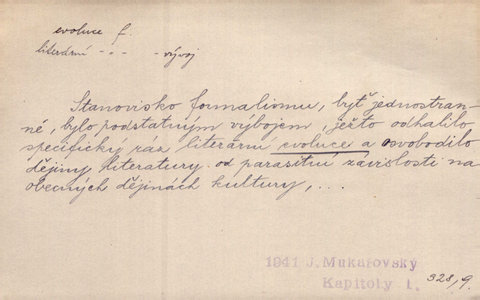 evoluce f.
literární -·- - vývoj
Stanovisko formalismu, byť jednostran-
né, bylo podstatným výbojem, ježto odhalilo
specifický ráz literární evoluce a osvobodilo
dějiny literatury od parasitní závislosti na
obecných dějinách kultury, ...
1941 J. Mukařovský
Kapitoly I.
328,9